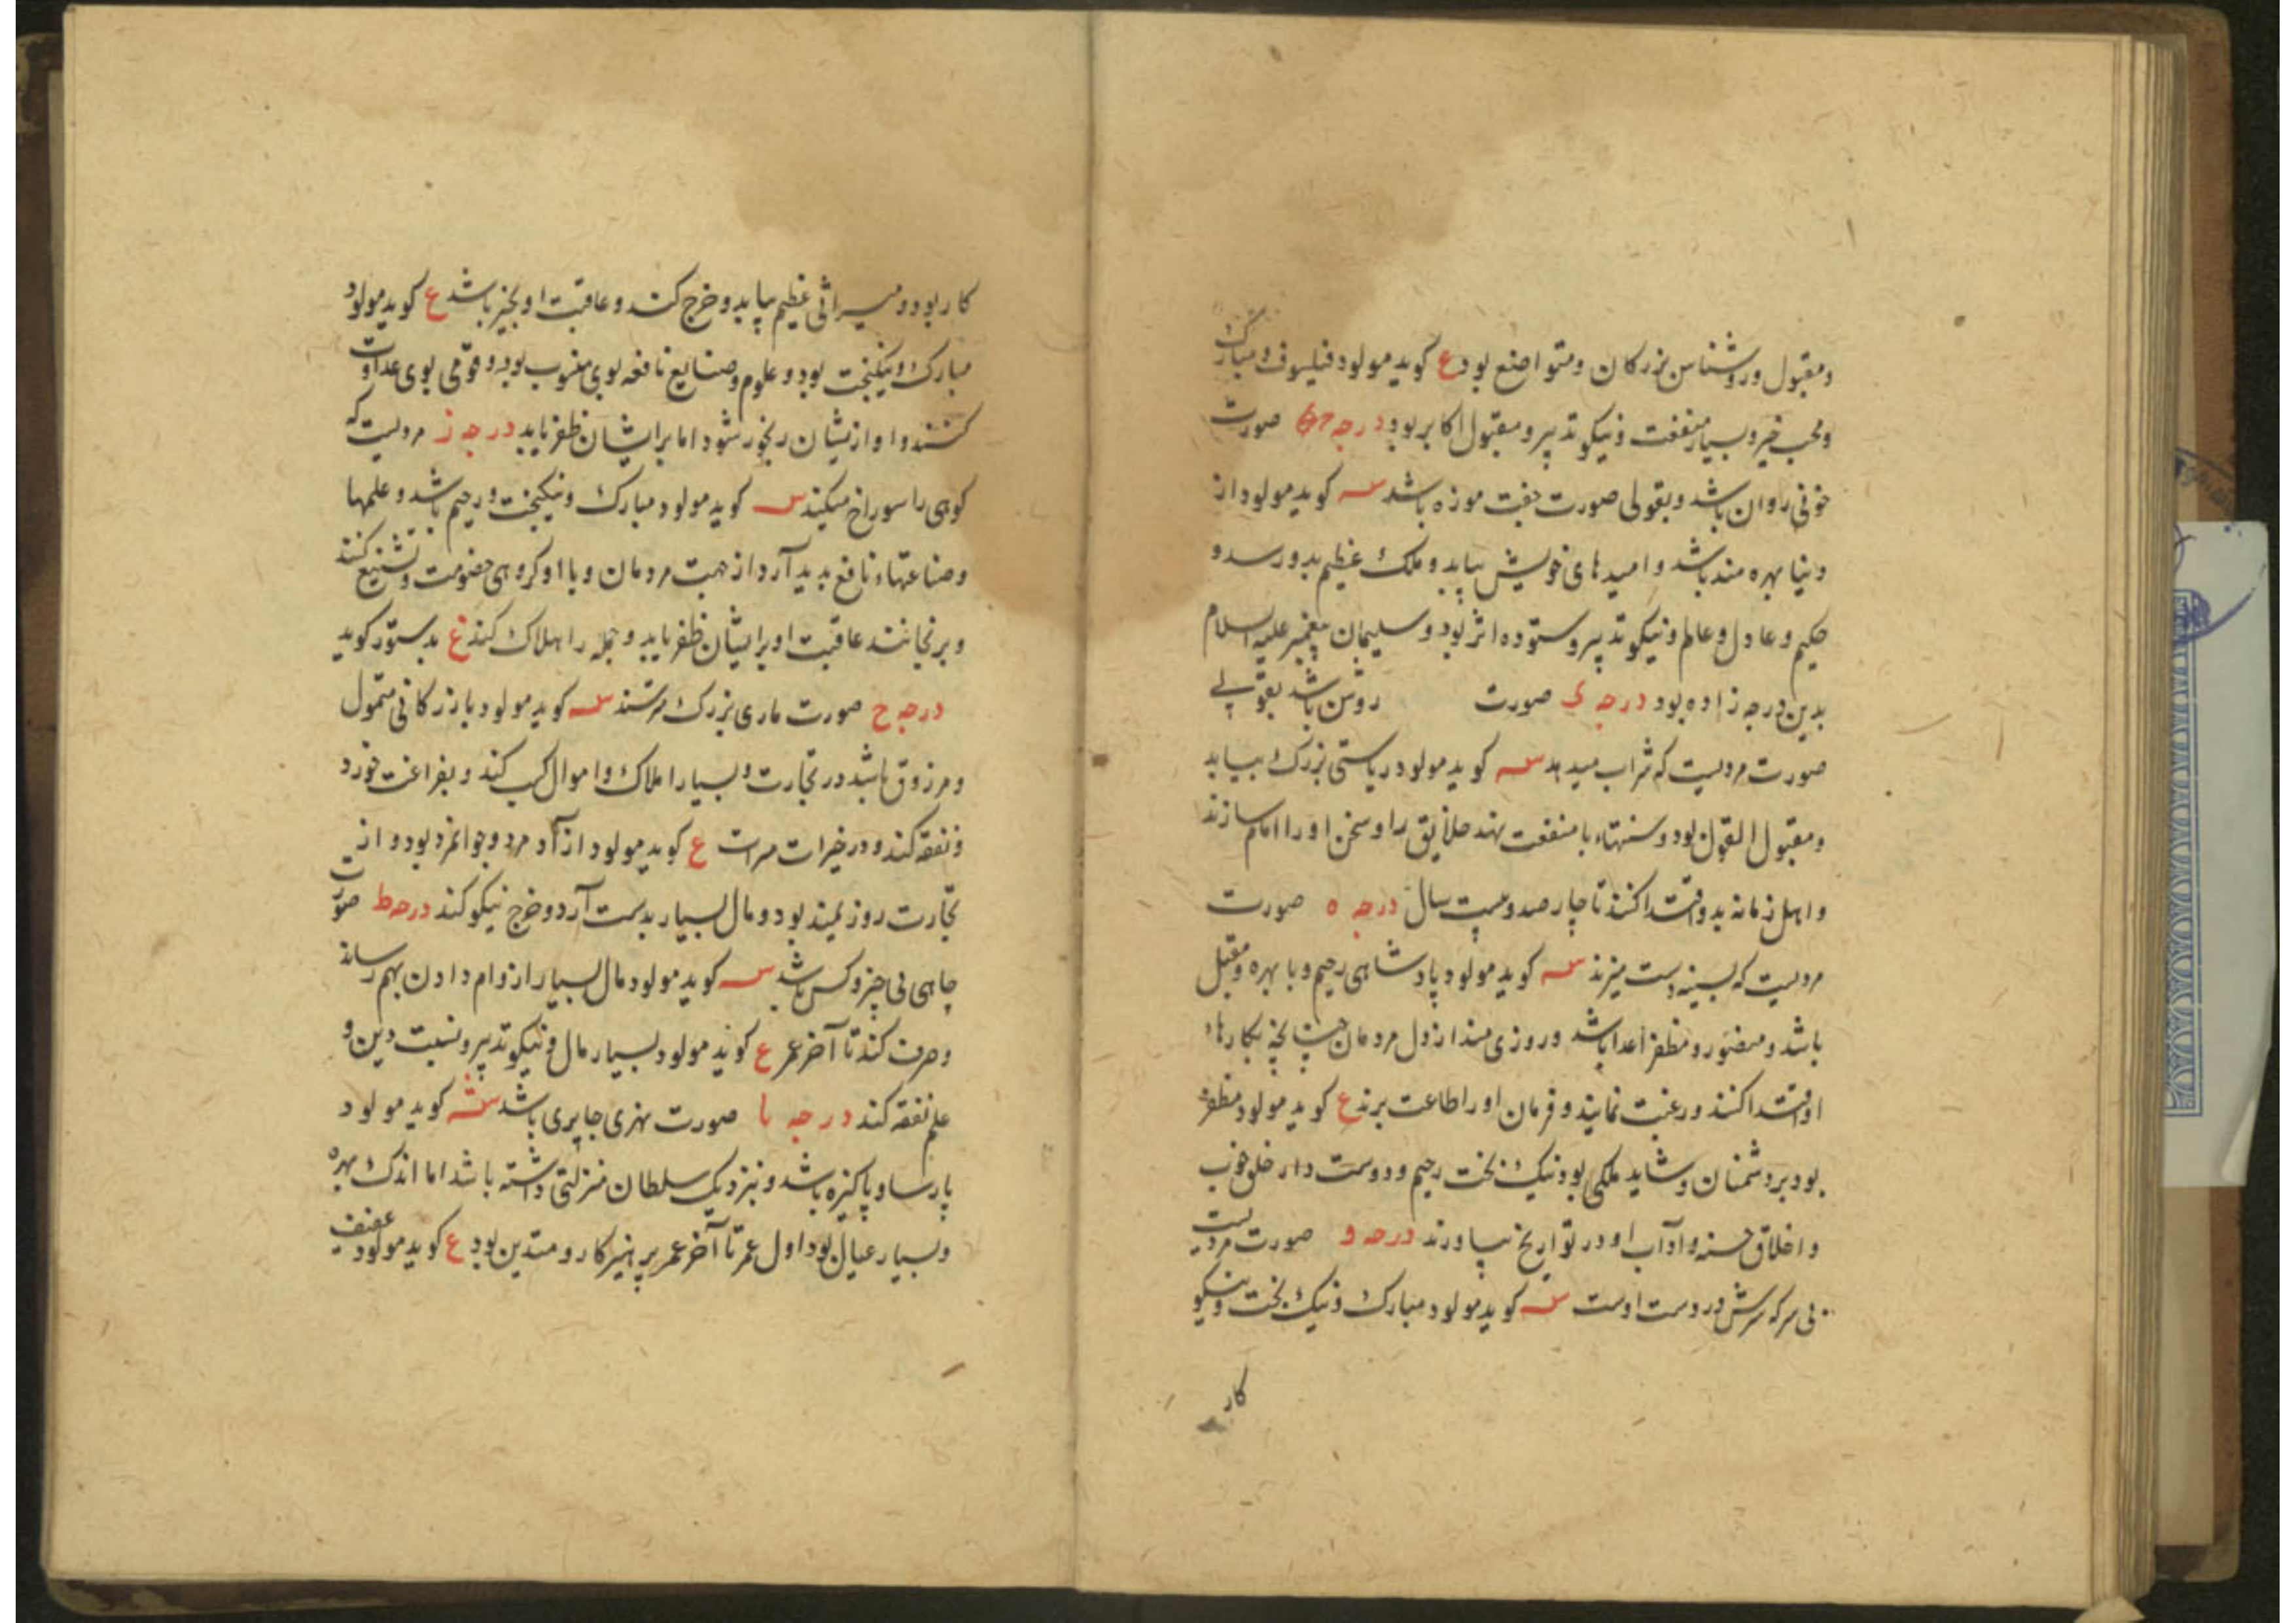 و مقبول و روشناس بزرکان و متواضع بود ع کوید مولود فیلسوف و مبارک
و محب خیر و بسیار منفعت و نیکو تدبیر و مقبول اکابر بود درجه صورت
خونی روان باشد و بقولی صورت جفت موزه باشد سـه کوید مولود از
دنیا بهره مند باشد و امیدهای خویش بیابد و ملک عظیم بدو رسد و
حکیم و عادل و عالم و نیکو تدبیر و ستوده اثر بود و سلیمان پیغمبر علیه السلام
بدین درجه زاده بود درجه صورت روشن باشد بقولی
صورت مردیست که شراب میدهد سـه کوید مولود ریاستی بزرک بیابد
و مقبول القول بود و سنتهاء با منفعت نهد خلایق را و سخن او را امام سازند
و اهل زمانه بدو اقتدا کنند تا چارصد و بیست سال درجه ه صورت
مردیست که بسینه دست میزند سـه کوید مولود پادشاهی رحیم و با بهره و مقبل
باشد و منصور و مظفر اعدا باشد و روزی مند از دل مردمان چنانچه بکارهاء
او اقتدا کنند و رغبت نمایند و فرمان او را طاعت برند ع کوید مولود مظفر
بود بر دشمنان و شاید ملکی بود نیک بخت رحیم و دوست دار خلق خوب
و اخلاق حسنه و آداب او در تواریخ بیاورند درجه و صورت مردیست
بی سر که سرش در دست اوست سـه کوید مولود مبارک و نیک بخت و نیکو
کار
کار بود و میراثی عظیم بیابد و خرج کند و عاقبت او بخیر باشد ع کوید مولود
مبارک و نیکبخت بود و علوم و صنایع نافعه بوی منسوب بود و قومی بوی عداوت
کنند و او از یشان رنجور شود اما بر ایشان ظفر یابد درجه ز مردیست که
کوهی را سوراخ میکند سـه کوید مولود مبارک و نیکبخت و رحیم باشد و علمها
و صناعتهاء نافع پدید آرد از جهت مردمان و با او کروهی خصومت و تشنیع کنند
و برنجانند عاقبت او بر ایشان ظفر یابد و جمله را هلاک کند ع بدستور کوید
درجه ح صورت ماری بزرک سـه کوید مولود بازرکانی متمول
و مرزوق باشد در تجارت و بسیار املاک و اموال کسب کند و بفراغت خورد
و نفقه کند و در خیرات ع کوید مولود آزاد مرد و جوانمرد بود و از
تجارت روزیمند بود و مال بسیار بدست آرد و خرج نیکو کند درجه ط صورت
چاهی بی چیز و کس باشد سـه کوید مولود مال بسیار از وام دادن بهم رساند
و صرف کند تا آخر عمر ع کوید مولود بسیار مال و نیکو تدبیر و نسبت دین و
علم نفقه کند درجه یا صورت نهری جاری باشد سـه کوید مولود
پارسا و پاکیزه باشد و بنزدیک سلطان منزلتی داشته باشد اما اندک بهره
و بسیار عیال بود اول عمر تا آخر عمر پرهیز کار و متدین بود ع کوید مولود عفیف